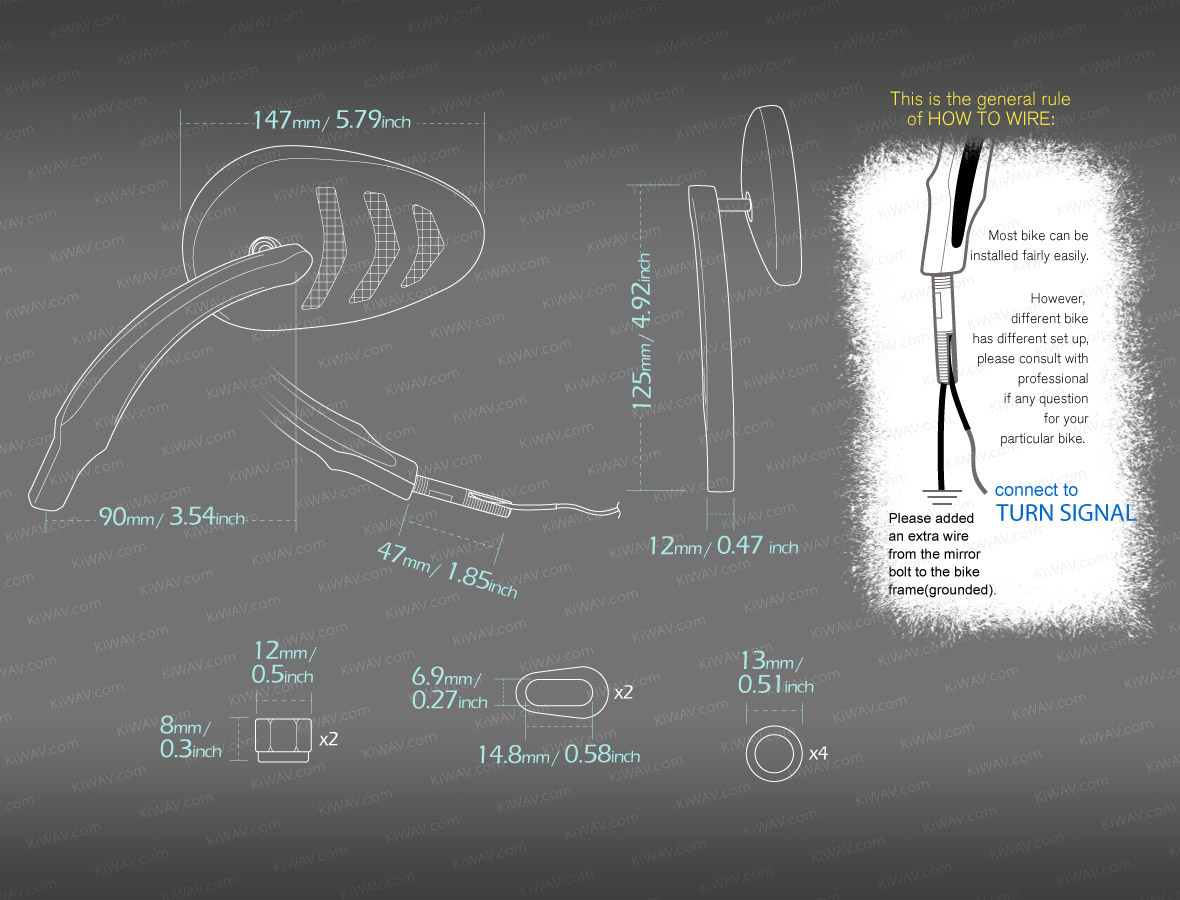 147mm/ 5.79inch
125mm/ 4.92inch
90mm/ 3.54inch
47mm/ 1.85inch
12mm/ 0.47 inch
This is the general rule
of HOW TO WIRE:
Most bike can be
installed fairly easily.
However,
different bike
has different set up,
please consult with
professional
if any question
for your
particular bike.
connect to
TURN SIGNAL
Please added
an extra wire
from the mirror
bolt to the bike
frame(grounded).
12mm/
0.5inch
8mm/
0.3inch
x2
6.9mm/
0.27inch
x2
14.8mm/ 0.58inch
13mm/
0.51inch
x4
KiWAV.com